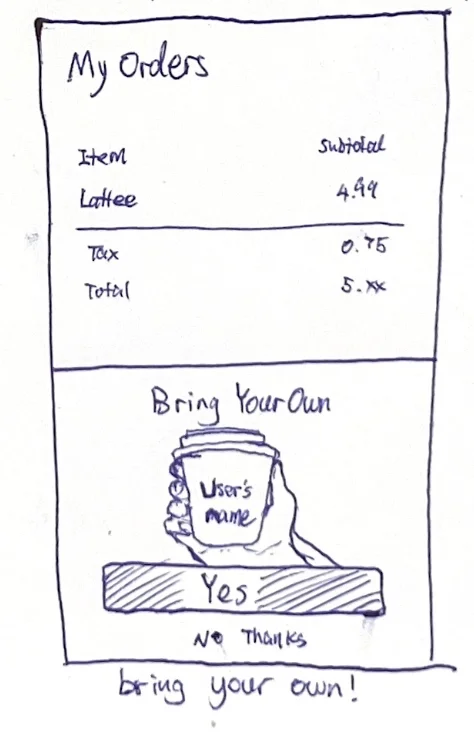 My Orders
Item Subtotal
Lattee 4.99
Tax 0.75
Total 5.xx
Bring Your Own
User's
name
Yes
No Thanks
bring your own!